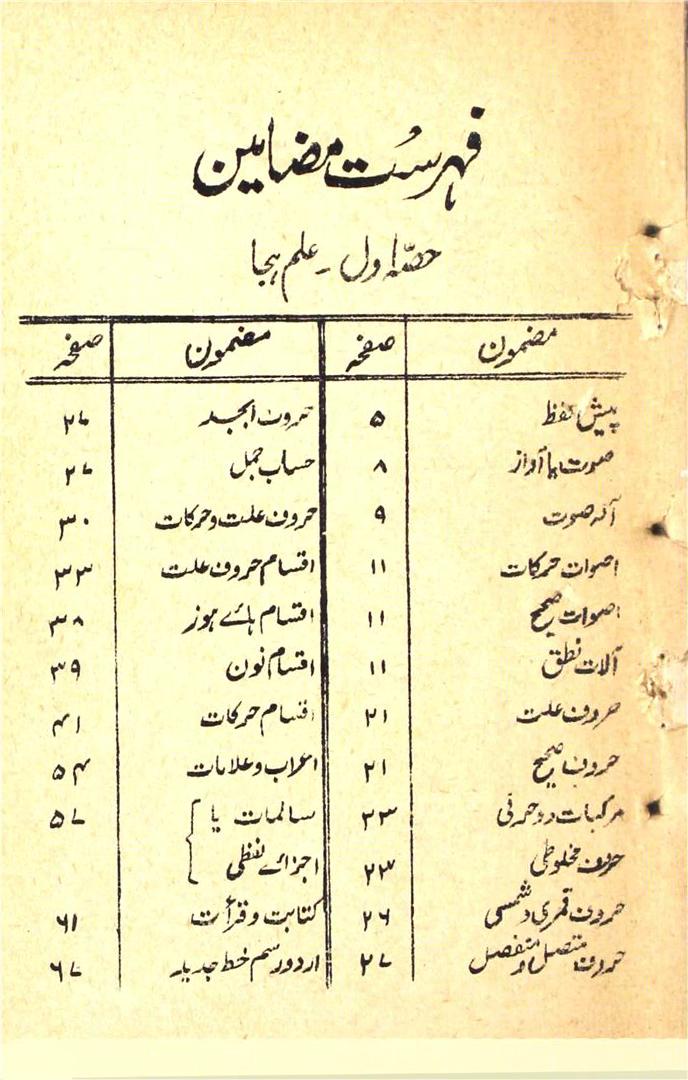 فہرست مضامین
حصّہ اول ۔ علم ہجا
مضمون صفحہ مضمون صفحہ
پیش لفظ ۵ حروف ابجد ۲۷
صوت یا آواز ۸ حساب جمل ۲۷
آلہ صوت ۹ حروف علت و حرکات ۳۰
اصوات حرکات ۱۱ اقسام حروف علت ۳۳
اصوات صحیح ۱۱ اقسام ہائے ہوز ۳۸
آلات نطق ۱۱ اقسام نون ۳۹
حروف علت ۲۱ اقسام حرکات ۴۱
حروف صحیح ۲۱ اعراب و علامات ۵۴
مرکبات دو حرفی ۲۳ سالمات یا ۵۷
حروف مخلوطی ۲۳ اجزائے لفظی
حروف قمری و شمسی ۲۶ کتابت و قرأت ۶۱
حروف متصل و منفصل ۲۷ اردو رسم خط جدید ۶۷